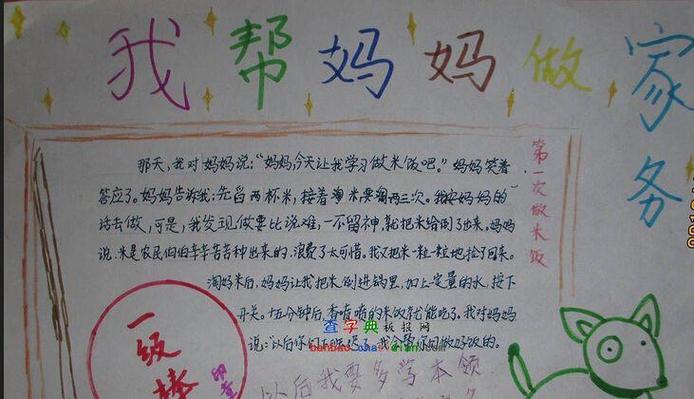 我帮妈妈做家务
第一次做米饭
那天,我对妈妈说:“妈妈,今天让我学习做米饭吧。”妈妈笑着
答应了。妈妈告诉我:先舀两杯米,接着淘米要淘两三次。我按妈妈的
话去做,可是,我发现做要比说难,一不留神,就把米给倒了出来。妈妈
说,米是农民伯伯辛辛苦苦种出来的,浪费了太可惜。我又把米一粒一粒地捡了回来。
淘好米后,妈妈让我把米倒进锅里,加上定量的水,按下
开关。十五分钟后,香喷喷的米饭就能吃了。我对妈妈
说:“以后你们上班迟了,我会帮你们做好饭的。
查字典板报网
以后我要多学本领
一级棒
印章